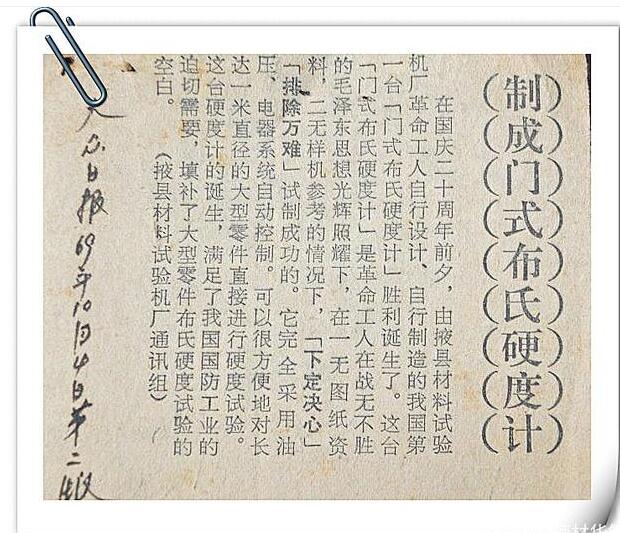 制成门式布氏硬度计
在国庆二十周年前夕，由掖县材料试验
机厂革命工人自行设计、自行制造的我国第
一台「门式布氏硬度计」胜利诞生了。这台
「门式布氏硬度计」是革命工人在战无不胜
的毛泽东思想光辉照耀下，在一无图纸资
料，二无样机参考的情况下，「下定决心」
「排除万难」试制成功的。它完全采用油
压、电器系统自动控制。可以很方便地对长
达一米直径的大型零件直接进行硬度试验。
这台硬度计的诞生，满足了我国国防工业的
迫切需要，填补了大型零件布氏硬度试验的
空白。
（掖县材料试验机厂通讯组）
大众日报69年10月4日第二版